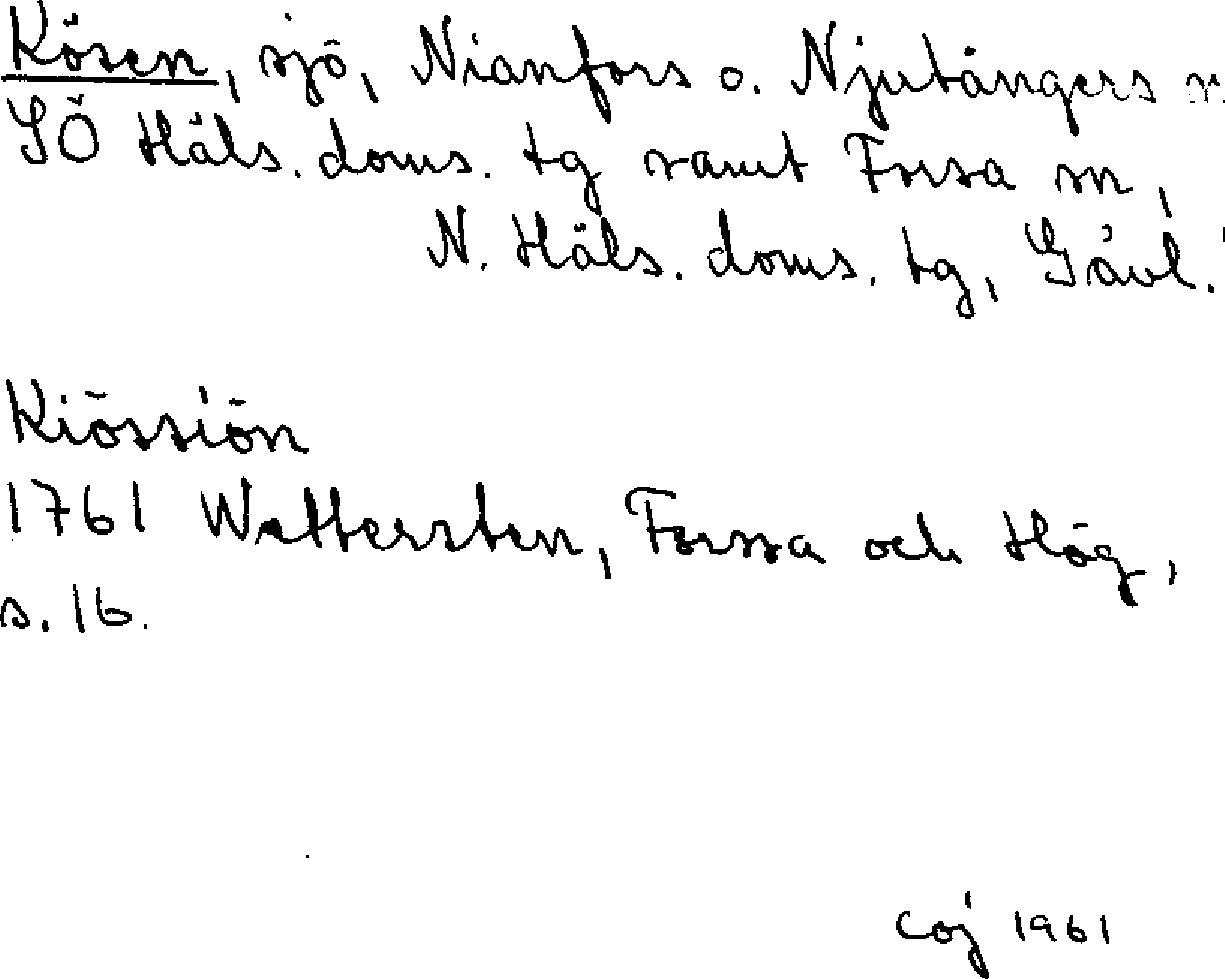 Kösen, sjö, Nianfors o. Njutångers
SÖ Häls. doms. tg samt Forsa sn,
N. Häls. doms. tg, Gävl.
Kiössiön
1761 Wettersten, Forssa och Hög,
s. 16.
coj 1961